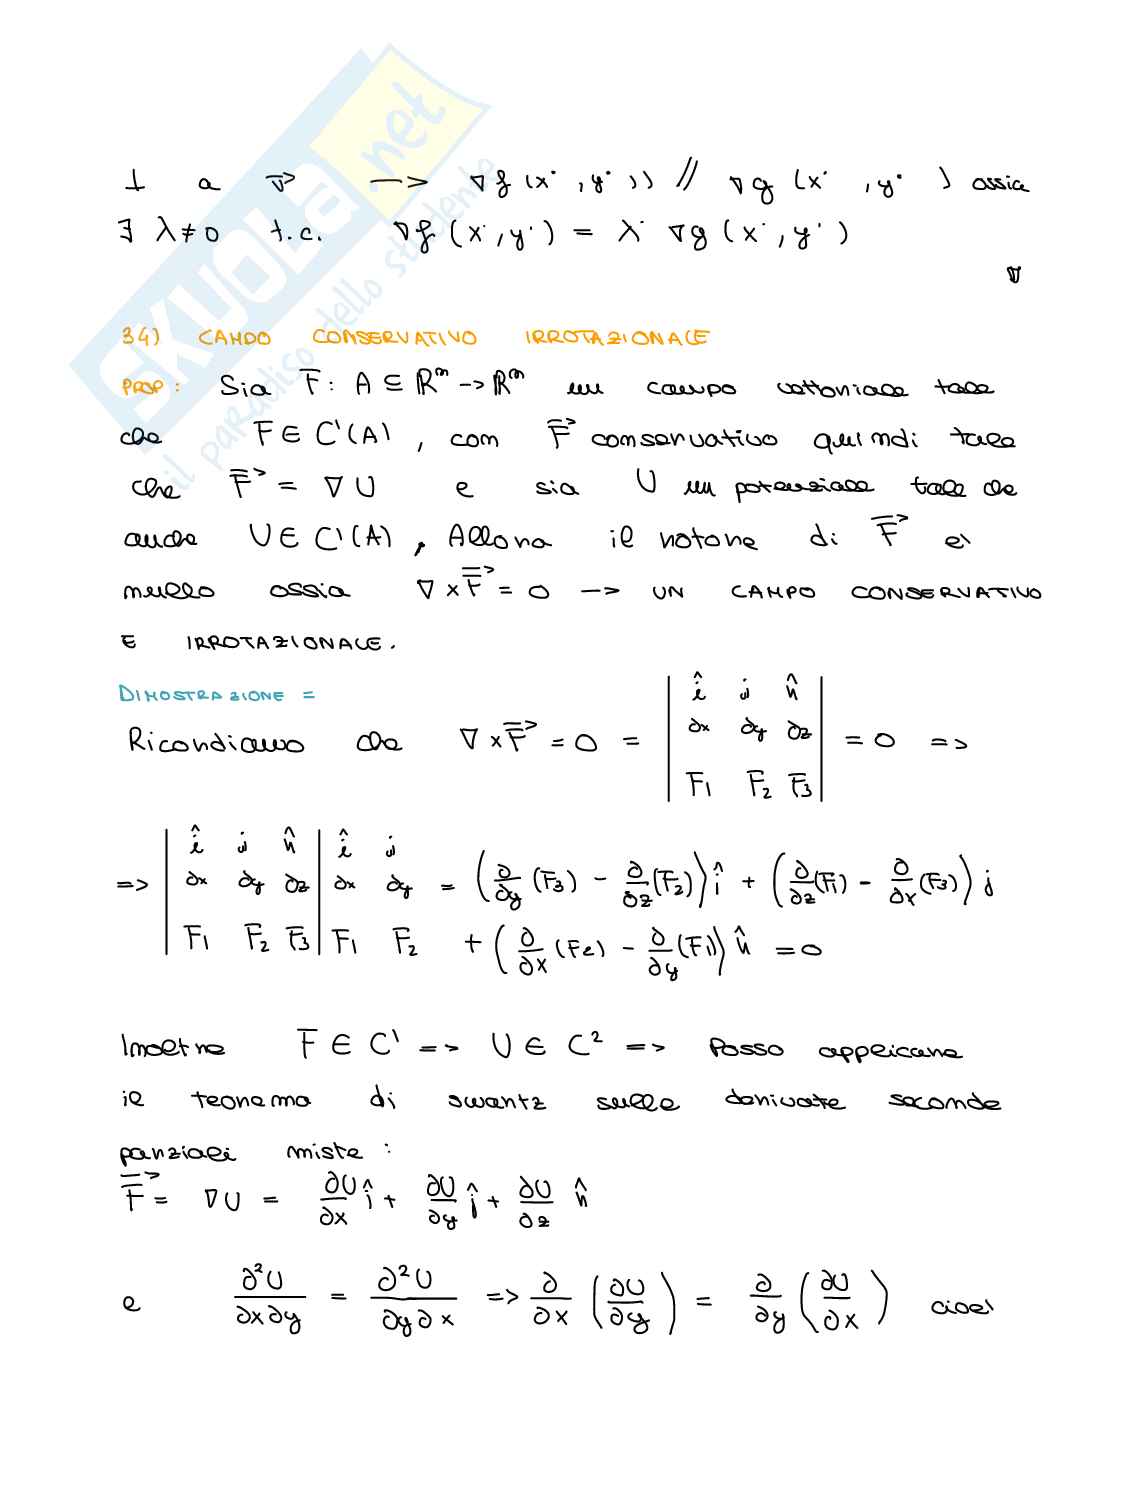 SKUOLA.net
il paradiso dello studente
⊥ a v⃗ —> ∇f (x°, y°)) // ∇g (x°, y°) ossia
∃ λ≠0 t.c. ∇f (x°, y°) = λ° ∇g (x°, y°)
∇
34) CAMPO CONSERVATIVO IRROTAZIONALE
PROP: Sia F: A ⊆ ℝᵐ -> ℝᵐ un campo vettoriale tale
che F ∈ C¹(A), con F⃗ conservativo quindi tale
che F⃗ = ∇U e sia U un potenziale tale che
anche U ∈ C¹(A), Allora il rotore di F⃗ e'
nullo ossia ∇ x F⃗ = 0 —> UN CAMPO CONSERVATIVO
E IRROTAZIONALE.
DIMOSTRAZIONE =
Ricordiamo che ∇ x F⃗ = 0 = | î j k̂ ; ∂x ∂y ∂z ; F1 F2 F3 | = 0 =>
=> | î j k̂ ; ∂x ∂y ∂z ; F1 F2 F3 | î j ; ∂x ∂y ; F1 F2 = (∂/∂y (F3) - ∂/∂z (F2)) î + (∂/∂z (F1) - ∂/∂x (F3)) j
+ (∂/∂x (F2) - ∂/∂y (F1)) k̂ = 0
Inoltre F ∈ C¹ => U ∈ C² => Posso applicare
il teorema di swartz sulle derivate seconde
parziali miste :
F⃗ = ∇U = ∂U/∂x î + ∂U/∂y ĵ + ∂U/∂z k̂
e ∂²U/∂x∂y = ∂²U/∂y∂x => ∂/∂x (∂U/∂y) = ∂/∂y (∂U/∂x) cioe'